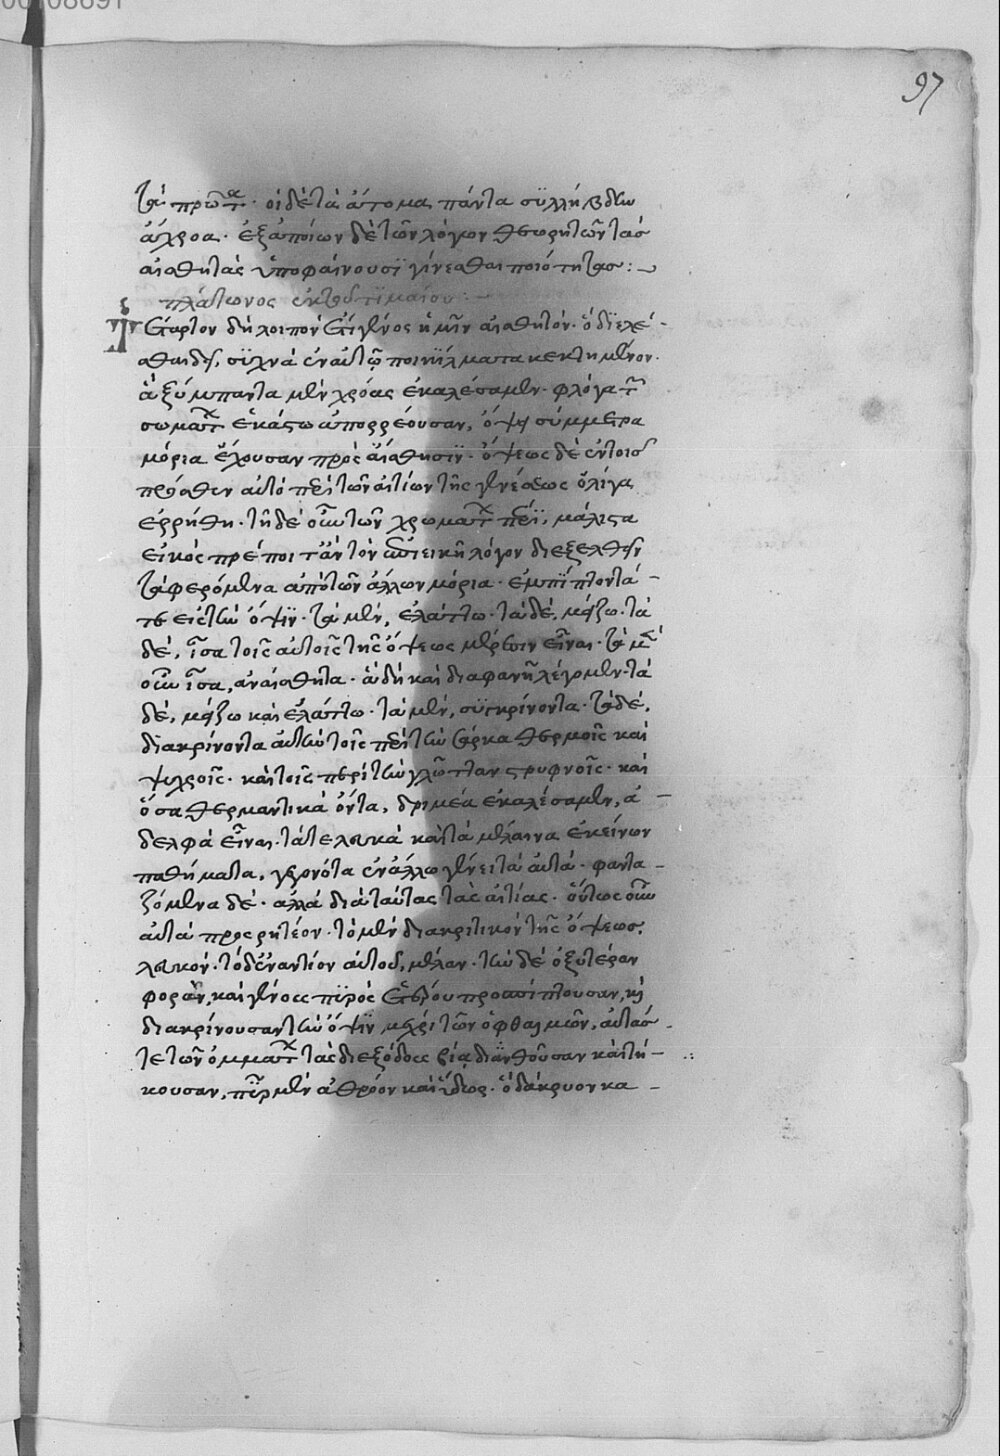 97
τὰ πρῶτα· οἱ δὲ τὰ ἄτομα πάντα συλλήβδην
ἄχροα· ἐξ ἀποίων δὲ τῶν λόγων θεωρητῶν τὰς
αἰσθητὰς ὑποφαίνουσι γίνεσθαι ποιότητας:
πλάτωνος ἐκ τοῦ τιμαίου:
Τέταρτον δὴ λοιπὸν ἔτι γένος ἡμῖν αἰσθητὸν· ὃ διελέ-
σθαι δεῖ, συχνὰ ἐν αὑτῷ ποικίλματα κεκτημένον·
ἃ ξύμπαντα μὲν χρόας ἐκαλέσαμεν· φλόγα τῶν
σωμάτων ἑκάστω ἀπορρέουσαν, ὄψει σύμμετρα
μόρια ἔχουσαν πρὸς αἴσθησιν· ὄψεως δὲ ἐν τοῖς
πρόσθεν αὐτὸ περὶ τῶν αἰτίων τῆς γενέσεως ὀλίγα
ἐρρήθη· τῆ δὲ οὖν τῶν χρωμάτων πέρι, μάλιστα
εἰκὸς πρέποι τ' ἂν τὸν ἐπιεικῆ λόγον διεξελθεῖν
τὰ φερόμενα ἀπὸ τῶν ἄλλων μόρια· ἐμπίπτοντά
τε εἰς τὴν ὄψιν· τὰ μὲν, ἐλάττω· τὰ δὲ, μείζω· τὰ
δὲ, ἴσα τοῖς αὐτοῖς τῆς ὄψεως μέρεσιν εἶναι· τὰ μὲν
οὖν ἴσα, ἀναίσθητα· ἃ δὴ καὶ διαφανῆ λέγομεν· τὰ
δὲ, μείζω καὶ ἐλάττω· τὰ μὲν, συγκρίνοντα· τὰ δὲ,
διακρίνοντα αὐτὴν τοῖς περὶ τὴν σάρκα θερμοῖς καὶ
ψυχροῖς· καὶ τοῖς περὶ τὴν γλῶτταν στρυφνοῖς· καὶ
ὅσα θερμαντικὰ ὄντα, δριμέα ἐκαλέσαμεν, ἀ-
δελφὰ εἶναι· τά τε λευκὰ καὶ τὰ μέλαινα ἐκείνων
παθήματα, γεγονότα ἐν ἄλλω γένει τὰ αὐτά· φαντα-
ζόμενα δὲ· ἄλλα διὰ ταύτας τὰς αἰτίας· οὕτως οὖν
αὐτὰ προςρητέον· τὸ μὲν διακριτικὸν τῆς ὄψεως,
λευκόν· τὸ δ' ἐναντίον αὐτοῦ, μέλαν· τὴν δὲ ὀξυτέραν
φορὰν, καὶ γένους πυρὸς ἑτέρου προσπίπτουσαν, καὶ
διακρίνουσαν τὴν ὄψιν μέχρι τῶν ὀφθαλμῶν, αὐτάς
τε τῶν ὀμμάτων τὰς διεξόδους βίᾳ διωθοῦσαν καὶ τή-
κουσαν, πῦρ μὲν ἀθρόον καὶ ὕδωρ· ὃ δάκρυον κα-